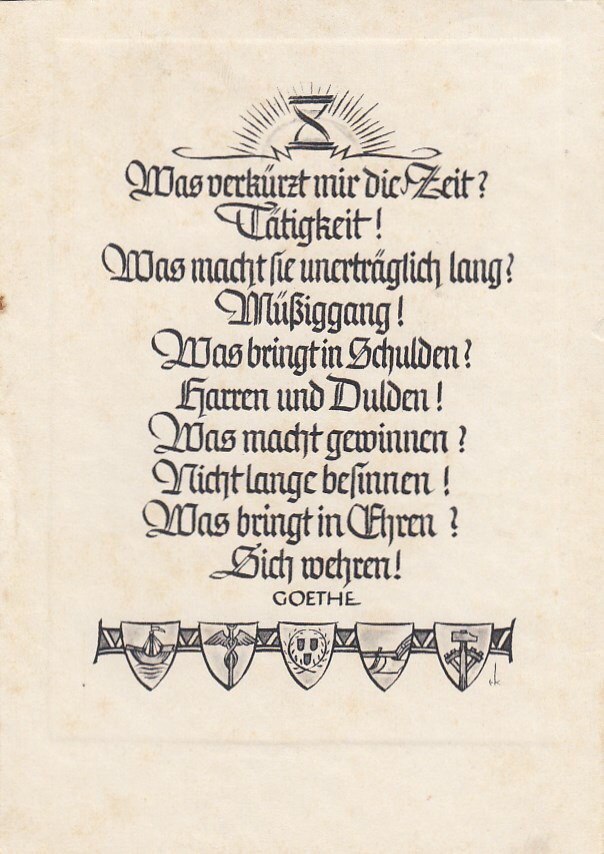 Was verkürzt mir die Zeit?
Tätigkeit!
Was macht sie unerträglich lang?
Müßiggang!
Was bringt in Schulden?
Harren und Dulden!
Was macht gewinnen?
Nicht lange besinnen!
Was bringt in Ehren?
Sich wehren!
GOETHE